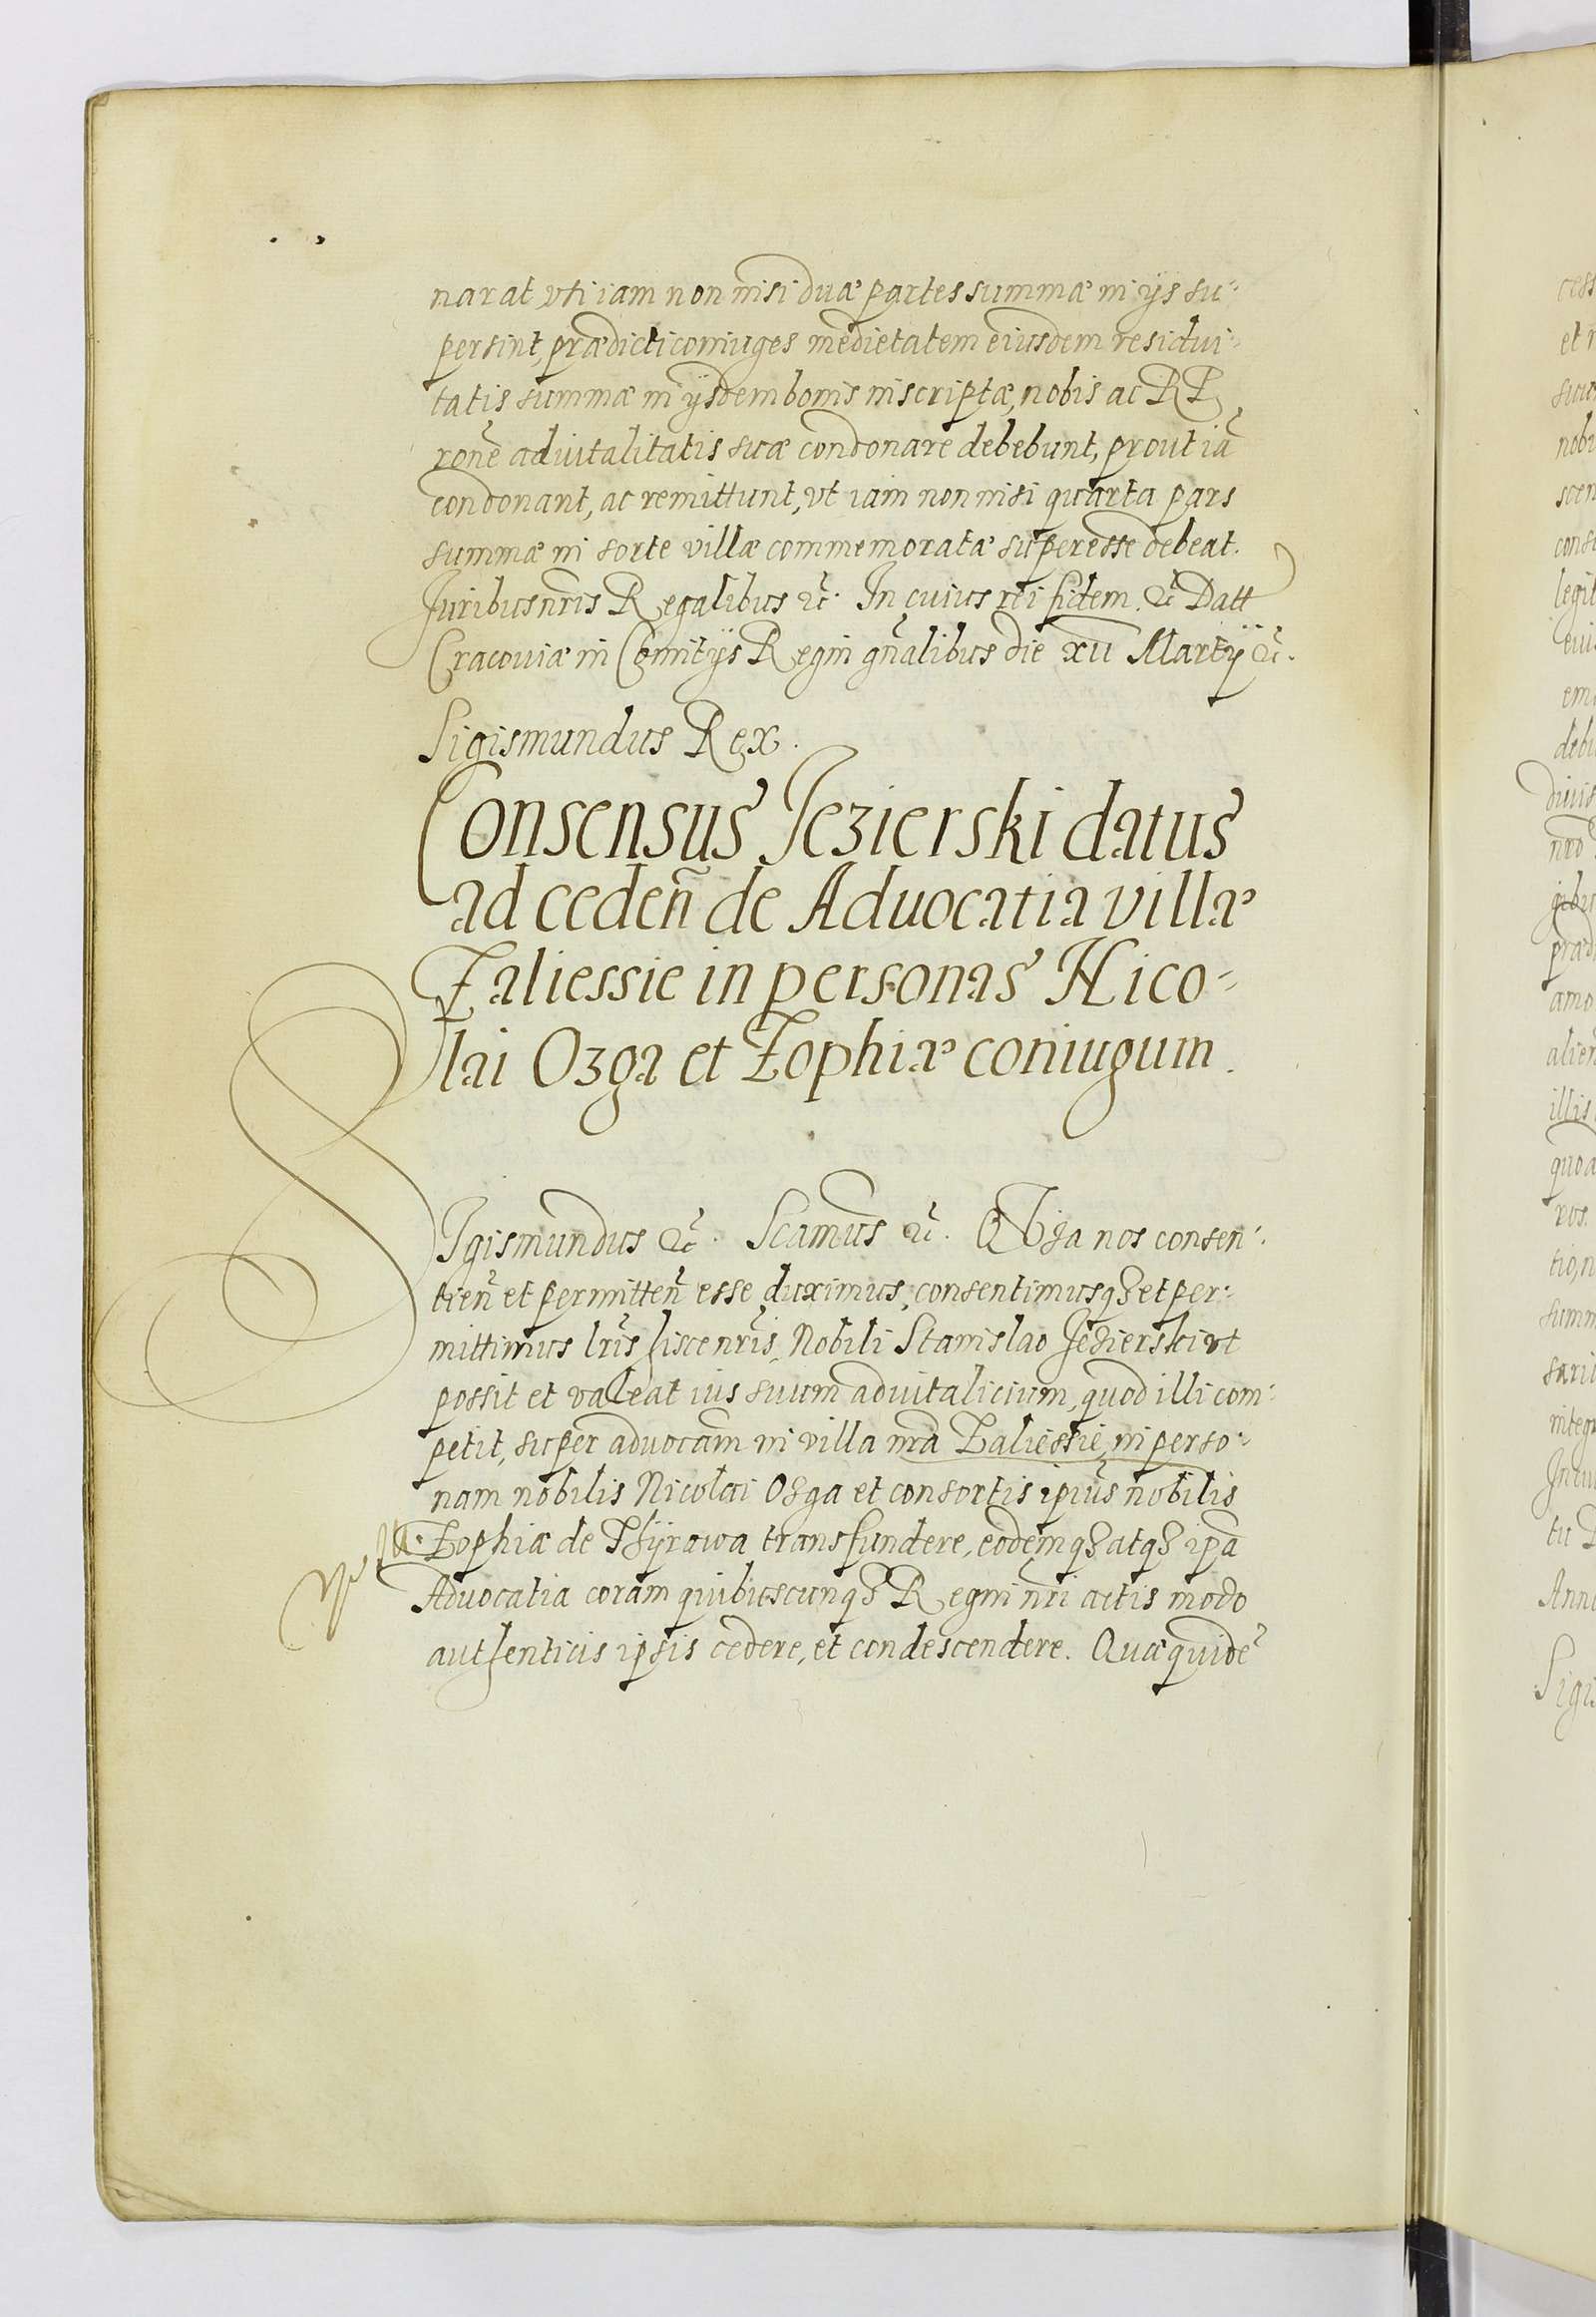 narat vti iam non nisi duæ partes summæ in ijs su-
persint, prædicti coniuges medietatem eiusdem residui-
tatis summæ in ijsdem bonis inscriptæ, nobis ac RP
ronē aduitalitatis suæ condonare debebunt, prout iā
condonant, ac remittunt, vt iam non nisi quarta pars
summæ in sorte villæ commemoratæ superesse debeat.
Juribus nr̄is Regalibus &c̄. In cuius rei fidem &c̄ Datt
Cracouiæ in Comitijs Regni gn̄alibus die xii Martÿ &c̄.
Sigismundus Rex.
Consensus Jezierski datus
ad cedeñ de Aduocatia villæ
Zaliessie in personas Nico-
lai Ozga et Zophiæ coniugum.
SIgismundus &c̄. Scamus &c̄. Quia nos consen-
tieñ et permitteñ esse duximus, consentimusqȝ et per-
mittimus lr̄is hisce nr̄is, Nobili Stanislao Jezierski vt
possit et valeat ius suum aduitalicium, quod illi com-
petit, super aduocam̄ in villa nr̄a Zaliessie, in perso-
nam nobilis Nicolai Ozga et consortis ipius nobilis
Zophiæ de transfundere, eodemqȝ atqȝ ip̄a
Aduocatia coram quibuscunqȝ Regni nr̄i actis modo
authenticis ipsis cedere, et condescendere. Quæquidē
cess
et r
nobi
scen
consu
legit
eius
em
debu
diuis
nrō
præd
amo
alien
illis
quoa
uos.
tio,n
summ
integr
tu D
Anno
Sigi